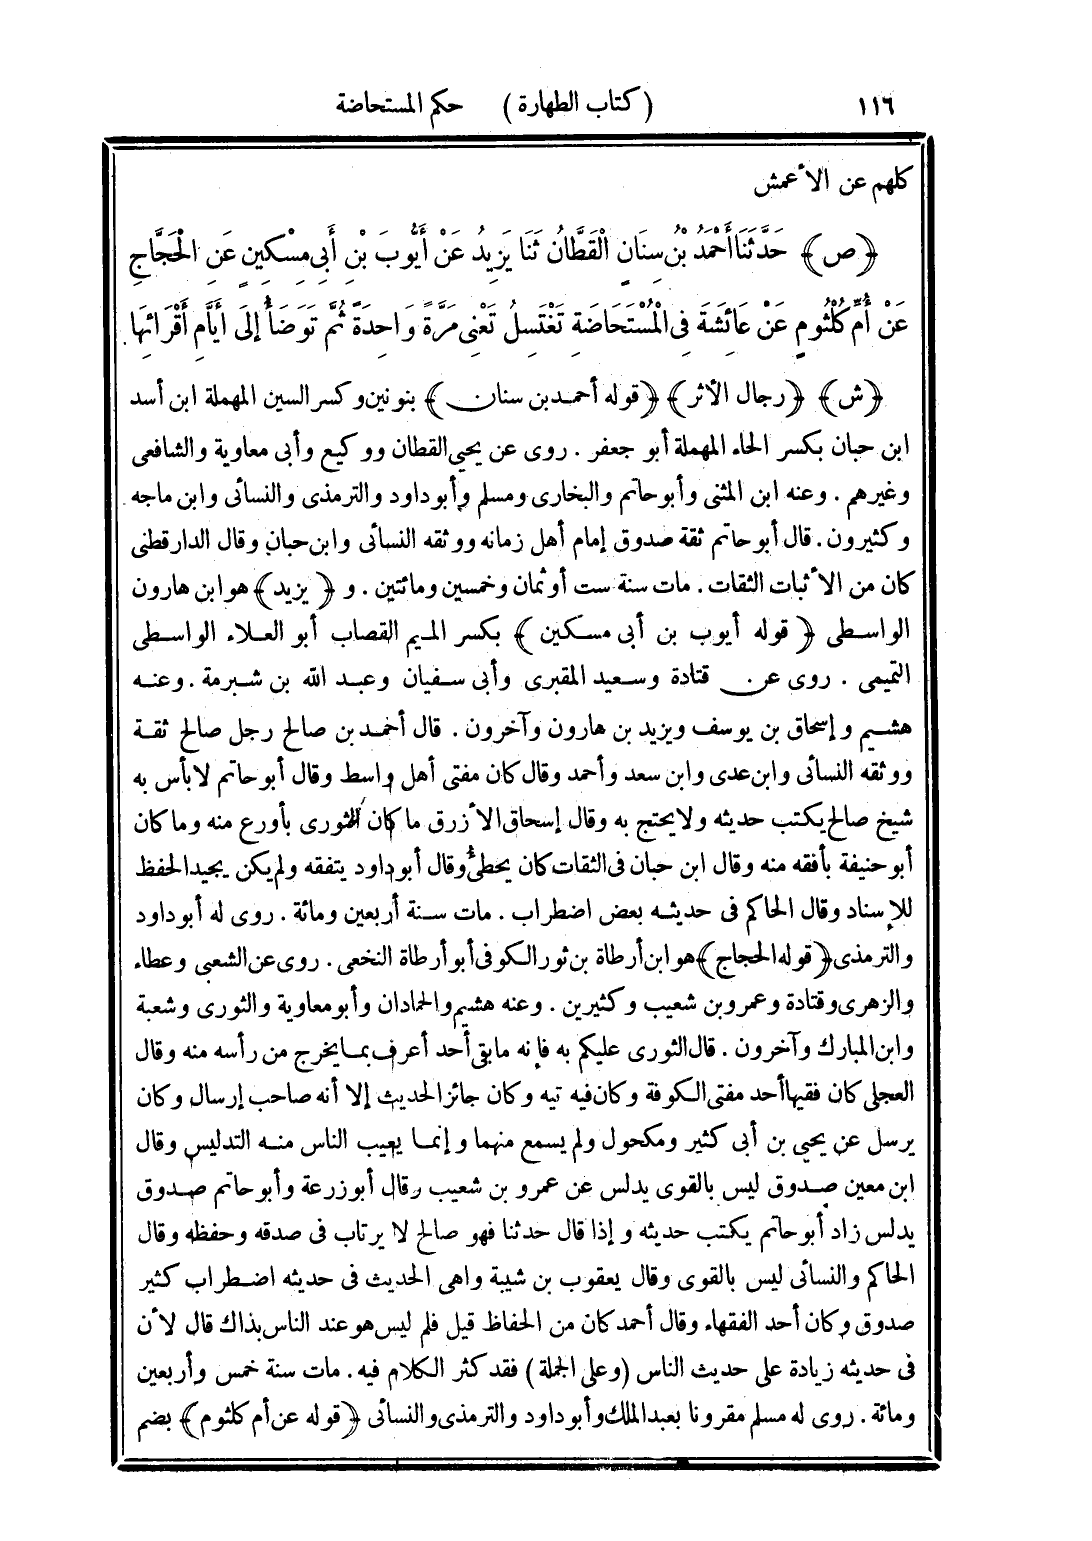 ١١٦ (كتاب الطهارة) حكم المستحاضة
كلهم عن الأعمش
﴿ص﴾ حَدَّثَنَا أَحْمَدُ بْنُ سِنَانٍ الْقَطَّانُ ثَنَا يَزِيدُ عَنْ أَيُّوبَ بْنِ أَبِي مِسْكِينٍ عَنِ الْحَجَّاجِ
عَنْ أُمِّ كُلْثُومٍ عَنْ عَائِشَةَ فِى الْمُسْتَحَاضَةِ تَغْتَسِلُ تَعْنِى مَرَّةً وَاحِدَةً ثُمَّ تَوَضَّأُ إِلَى أَيَّامِ أَقْرَائِهَا.
﴿ش﴾ ﴿رجال الأثر﴾ ﴿قوله أحمد بن سنان﴾ بنونين وكسر السين المهملة ابن أسد
ابن حبان بكسر الحاء المهملة أبو جعفر. روى عن يحيى القطان ووكيع وأبى معاوية والشافعى
وغيرهم. وعنه ابن المثنى وأبوحاتم والبخارى ومسلم وأبوداود والترمذى والنسائى وابن ماجه.
وكثيرون. قال أبوحاتم ثقة صدوق إمام أهل زمانه ووثقه النسائى وابن حبان وقال الدارقطنى
كان من الأثبات الثقات. مات سنة ست أوثمان وخمسين ومائتين. و ﴿يزيد﴾ هو ابن هارون
الواسطى ﴿قوله أيوب بن أبى مسكين﴾ بكسر الميم القصاب أبو العلاء الواسطى
التميمى. روى عن قتادة وسعيد المقبرى وأبى سفيان وعبد الله بن شبرمة. وعنه
هشيم وإسحاق بن يوسف ويزيد بن هارون وآخرون. قال أحمد بن صالح رجل صالح ثقة
ووثقه النسائى وابن عدى وابن سعد وأحمد وقال كان مفتى أهل واسط وقال أبوحاتم لابأس به
شيخ صالح يكتب حديثه ولايحتج به وقال إسحاق الأزرق ما كان الثورى بأورع منه وما كان
أبوحنيفة بأفقه منه وقال ابن حبان فى الثقات كان يخطئ وقال أبوداود يتفقه ولم يكن يجيد الحفظ
للإسناد وقال الحاكم فى حديثه بعض اضطراب. مات سنة أربعين ومائة. روى له أبوداود
والترمذى ﴿قوله الحجاج﴾ هو ابن أرطاة بن ثور الكوفى أبو أرطاة النخعى. روى عن الشعبى وعطاء
والزهرى وقتادة وعمرو بن شعيب وكثيرين. وعنه هشيم والحمادان وأبومعاوية والثورى وشعبة
وابن المبارك وآخرون. قال الثورى عليكم به فإنه مابقى أحد أعرف بما يخرج من رأسه منه وقال
العجلى كان فقيها أحد مفتى الكوفة وكان فيه تيه وكان جائز الحديث إلا أنه صاحب إرسال وكان
يرسل عن يحيى بن أبى كثير ومكحول ولم يسمع منهما وإنما يعيب الناس منه التدليس وقال
ابن معين صدوق ليس بالقوى يدلس عن عمرو بن شعيب وقال أبوزرعة وأبوحاتم صدوق
يدلس زاد أبوحاتم يكتب حديثه وإذا قال حدثنا فهو صالح لا يرتاب فى صدقه وحفظه وقال
الحاكم والنسائى ليس بالقوى وقال يعقوب بن شيبة واهى الحديث فى حديثه اضطراب كثير
صدوق وكان أحد الفقهاء وقال أحمد كان من الحفاظ قيل فلم ليس هو عند الناس بذاك قال لأن
فى حديثه زيادة على حديث الناس (وعلى الجملة) فقد كثر الكلام فيه. مات سنة خمس وأربعين
ومائة. روى له مسلم مقرونا بعبدالملك وأبوداود والترمذى والنسائى ﴿قوله عن أم كلثوم﴾ بضم